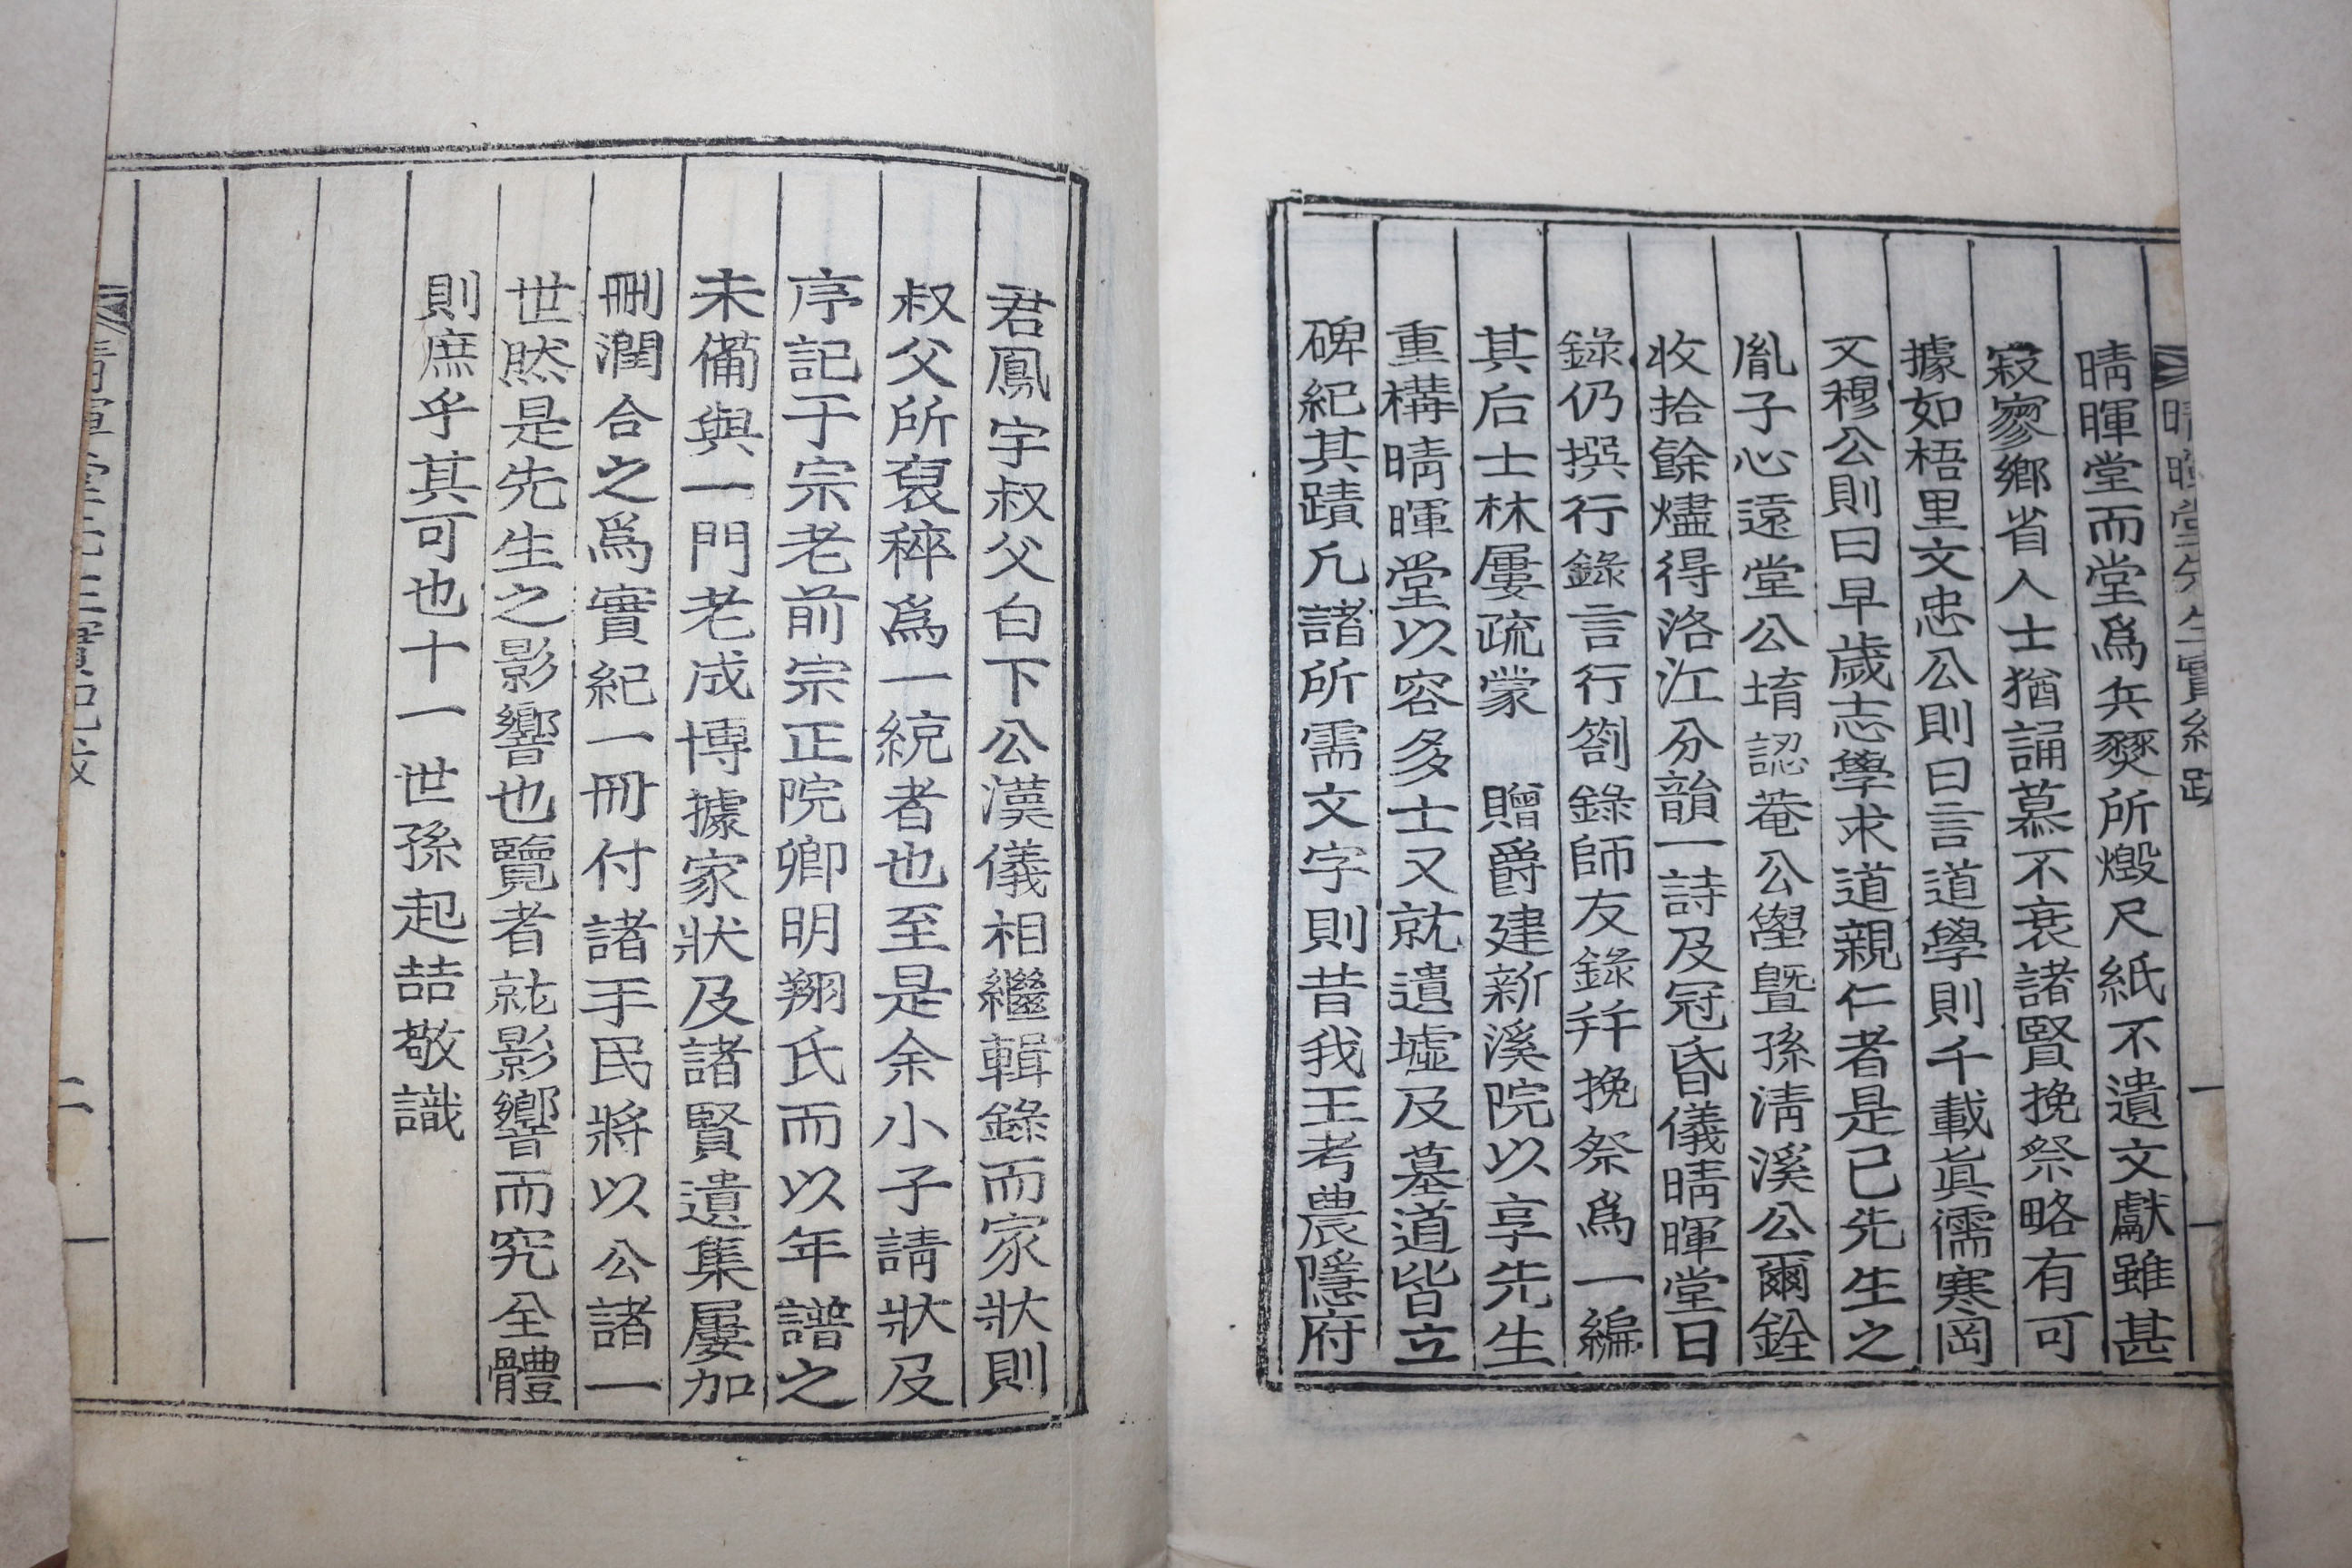 晴暉堂先生實紀跋
一
晴暉堂而堂爲兵燹所燬尺紙不遺文獻雖甚
寂寥鄉省人士猶誦慕不衰諸賢挽祭略有可
據如梧里文忠公則曰言道學則千載眞儒寒岡
文穆公則曰早歲志學求道親仁者是已先生之
胤子心遠堂公堉認菴公壆曁孫淸溪公爾銓
收拾餘燼得洛江分韻一詩及冠昏儀晴暉堂日
錄仍撰行錄言行箚錄師友錄幷挽祭爲一編
其后士林屢疏蒙 贈爵建新溪院以享先生
重構晴暉堂以容多士又就遺墟及墓道皆立
碑紀其蹟凡諸所需文字則昔我王考農隱府
君鳳宇叔父白下公漢儀相繼輯錄而家狀則
叔父所裒稡爲一統者也至是余小子請狀及
序記于宗老前宗正院卿明翔氏而以年譜之
未備與一門老成博據家狀及諸賢遺集屢加
刪潤合之爲實紀一冊付諸手民將以公諸一
世然是先生之影響也覽者就影響而究全體
則庶乎其可也十一世孫起喆敬識
二